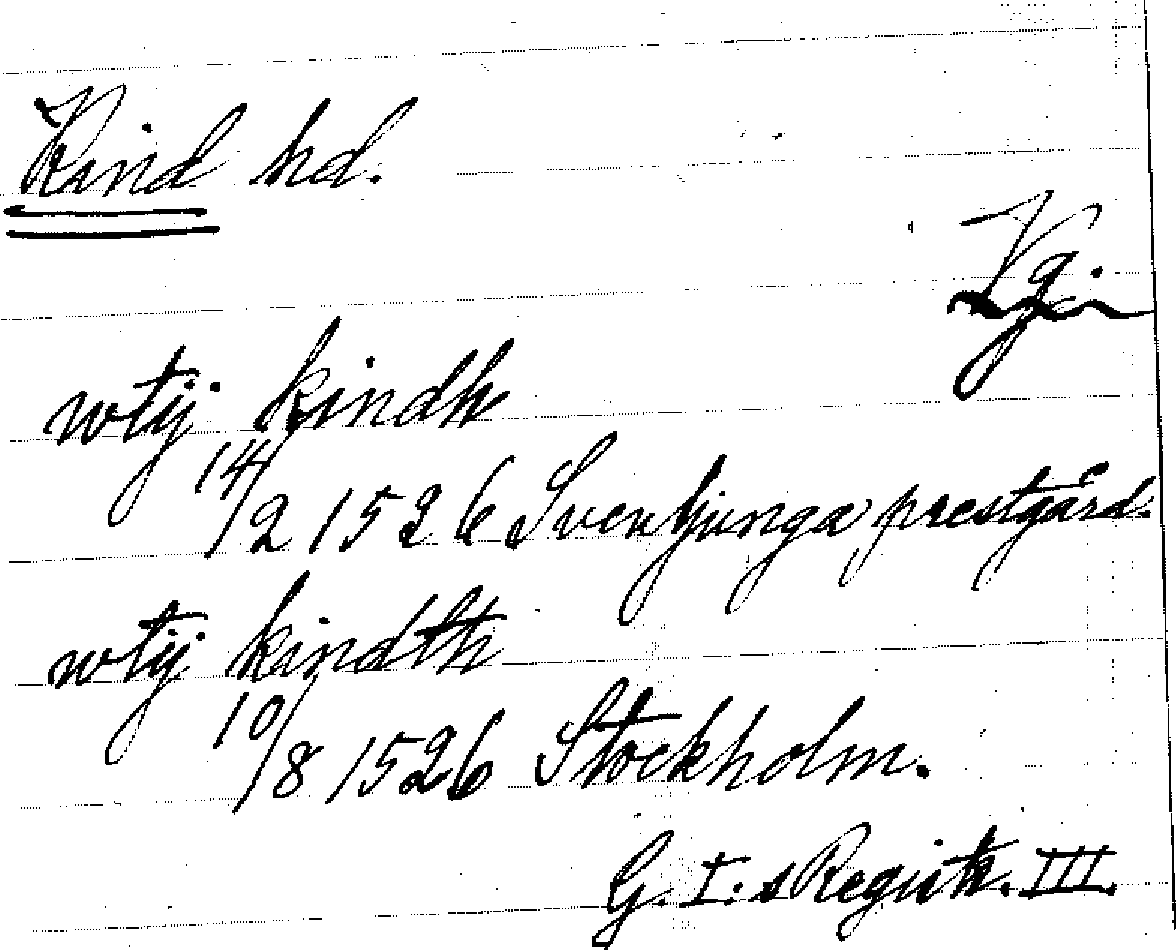 Kind hd.
Vg.
wtij kindh
14/2 1526 Svenljunga prestgård.
wtij kindth
10/8 1526 Stockholm.
G. I:s Registr. III.